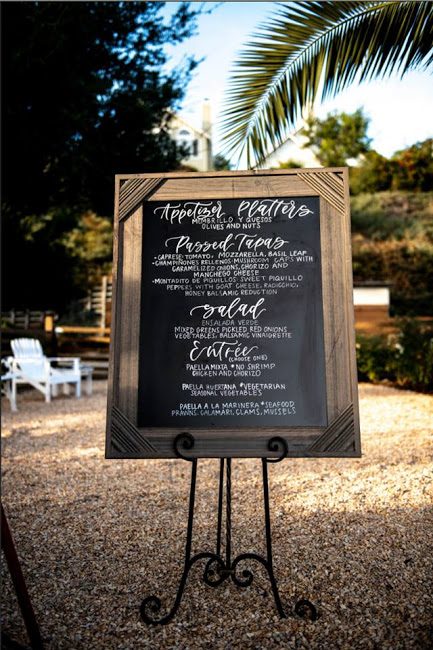 Appetizer Platters
MEMBRILLO Y QUESOS
OLIVES AND NUTS
Passed Tapas
-CAPRESE: TOMATO, MOZZARELLA, BASIL LEAF
-CHAMPIÑONES RELLENOS: MUSHROOM CAPS WITH
CARAMELIZED ONIONS, CHORIZO AND
MANCHEGO CHEESE
-MONTADITO DE PIQUILLOS: SWEET PIQUILLO
PEPPERS WITH GOAT CHEESE, RADICCHIO,
HONEY BALSAMIC REDUCTION
Salad
ENSALADA VERDE
MIXED GREENS PICKLED RED ONIONS
VEGETABLES, BALSAMIC VINAIGRETTE
Entrée
(CHOOSE ONE)
PAELLA MIXTA *NO SHRIMP
CHICKEN AND CHORIZO
PAELLA HUERTANA *VEGETARIAN
SEASONAL VEGETABLES
PAELLA A LA MARINERA *SEAFOOD
PRAWNS, CALAMARI, CLAMS, MUSSELS